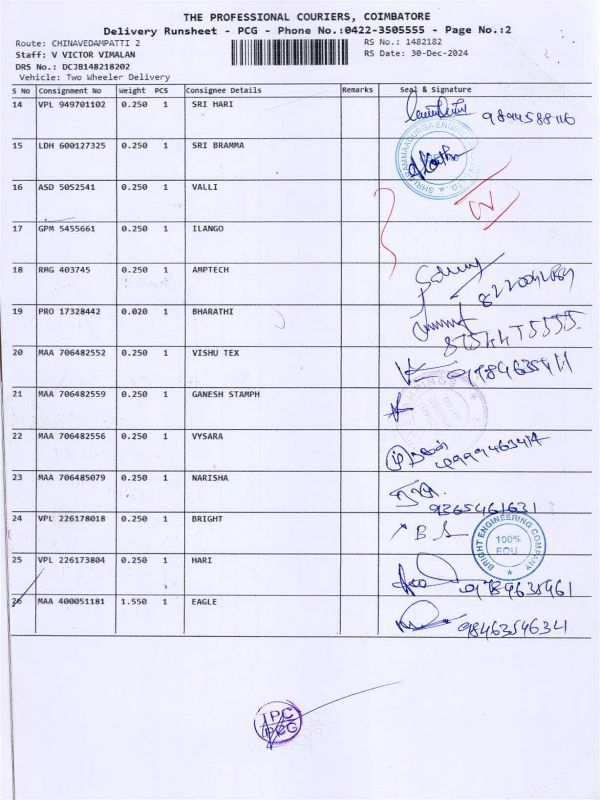 THE PROFESSIONAL COURIERS, COIMBATORE
Delivery Runsheet - PCG - Phone No.:0422-3505555 - Page No.:2
Route: CHINAVEDAMPATTI 2 RS No.: 1482182
Staff: V VICTOR VIMALAN RS Date: 30-Dec-2024
DRS No.: DCJB148218202
Vehicle: Two Wheeler Delivery
S No Consignment No Weight PCS Consignee Details Remarks Seal & Signature
14 VPL 949701102 0.250 1 SRI HARI
15 LDH 600127325 0.250 1 SRI BRAMMA
16 ASD 5052541 0.250 1 VALLI
17 GPM 5455661 0.250 1 ILANGO
18 RMG 403745 0.250 1 AMPTECH
19 PRO 17328442 0.020 1 BHARATHI
20 MAA 706482552 0.250 1 VISHU TEX
21 MAA 706482559 0.250 1 GANESH STAMPH
22 MAA 706482556 0.250 1 VYSARA
23 MAA 706485079 0.250 1 NARISHA
9365461631
24 VPL 226178018 0.250 1 BRIGHT
BRIGHT ENGINEERING COMPANY
100%
EOU
25 VPL 226173804 0.250 1 HARI
9789635961
26 MAA 400051181 1.550 1 EAGLE
IPC
PCG